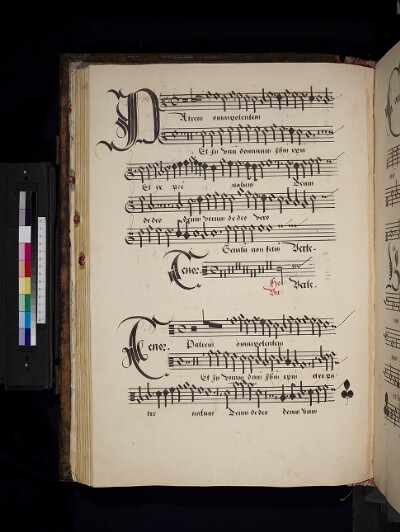 Patrem omnipotentem
Et in vnū dominum Jhm xpm
Et ex pre natum Deum
de deo deum verum de deo vero
Genitū non factū Verte.
Tenor.
Verte.
Tenor. Patrem omnipotentem
Et in vnum dnm Jhm xpm et ex pa
tre natum Deum de deo deum verum